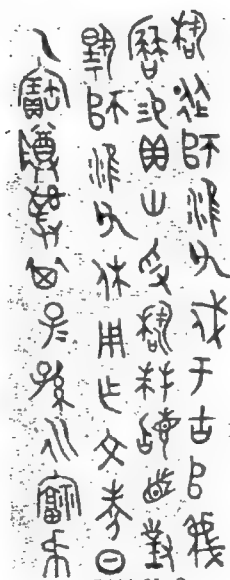 稽從師淮父戍于古𠂤蔑
曆易貝卅寽稽拜稽首對
揚師淮父休用乍文考日
乙寶尊彝其子孫永福戉